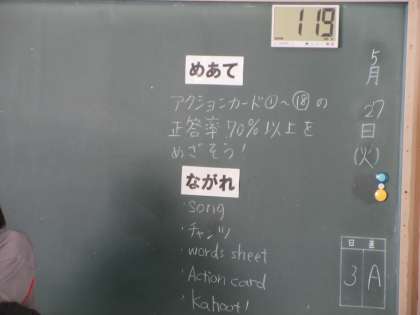 119
めあて
アクションカード①～⑱の
正答率70%以上を
めざそう!
ながれ
・song
・チャンツ
・words sheet
・Action card
・Kahoot!
5月
27日
(火)
日直
3 A